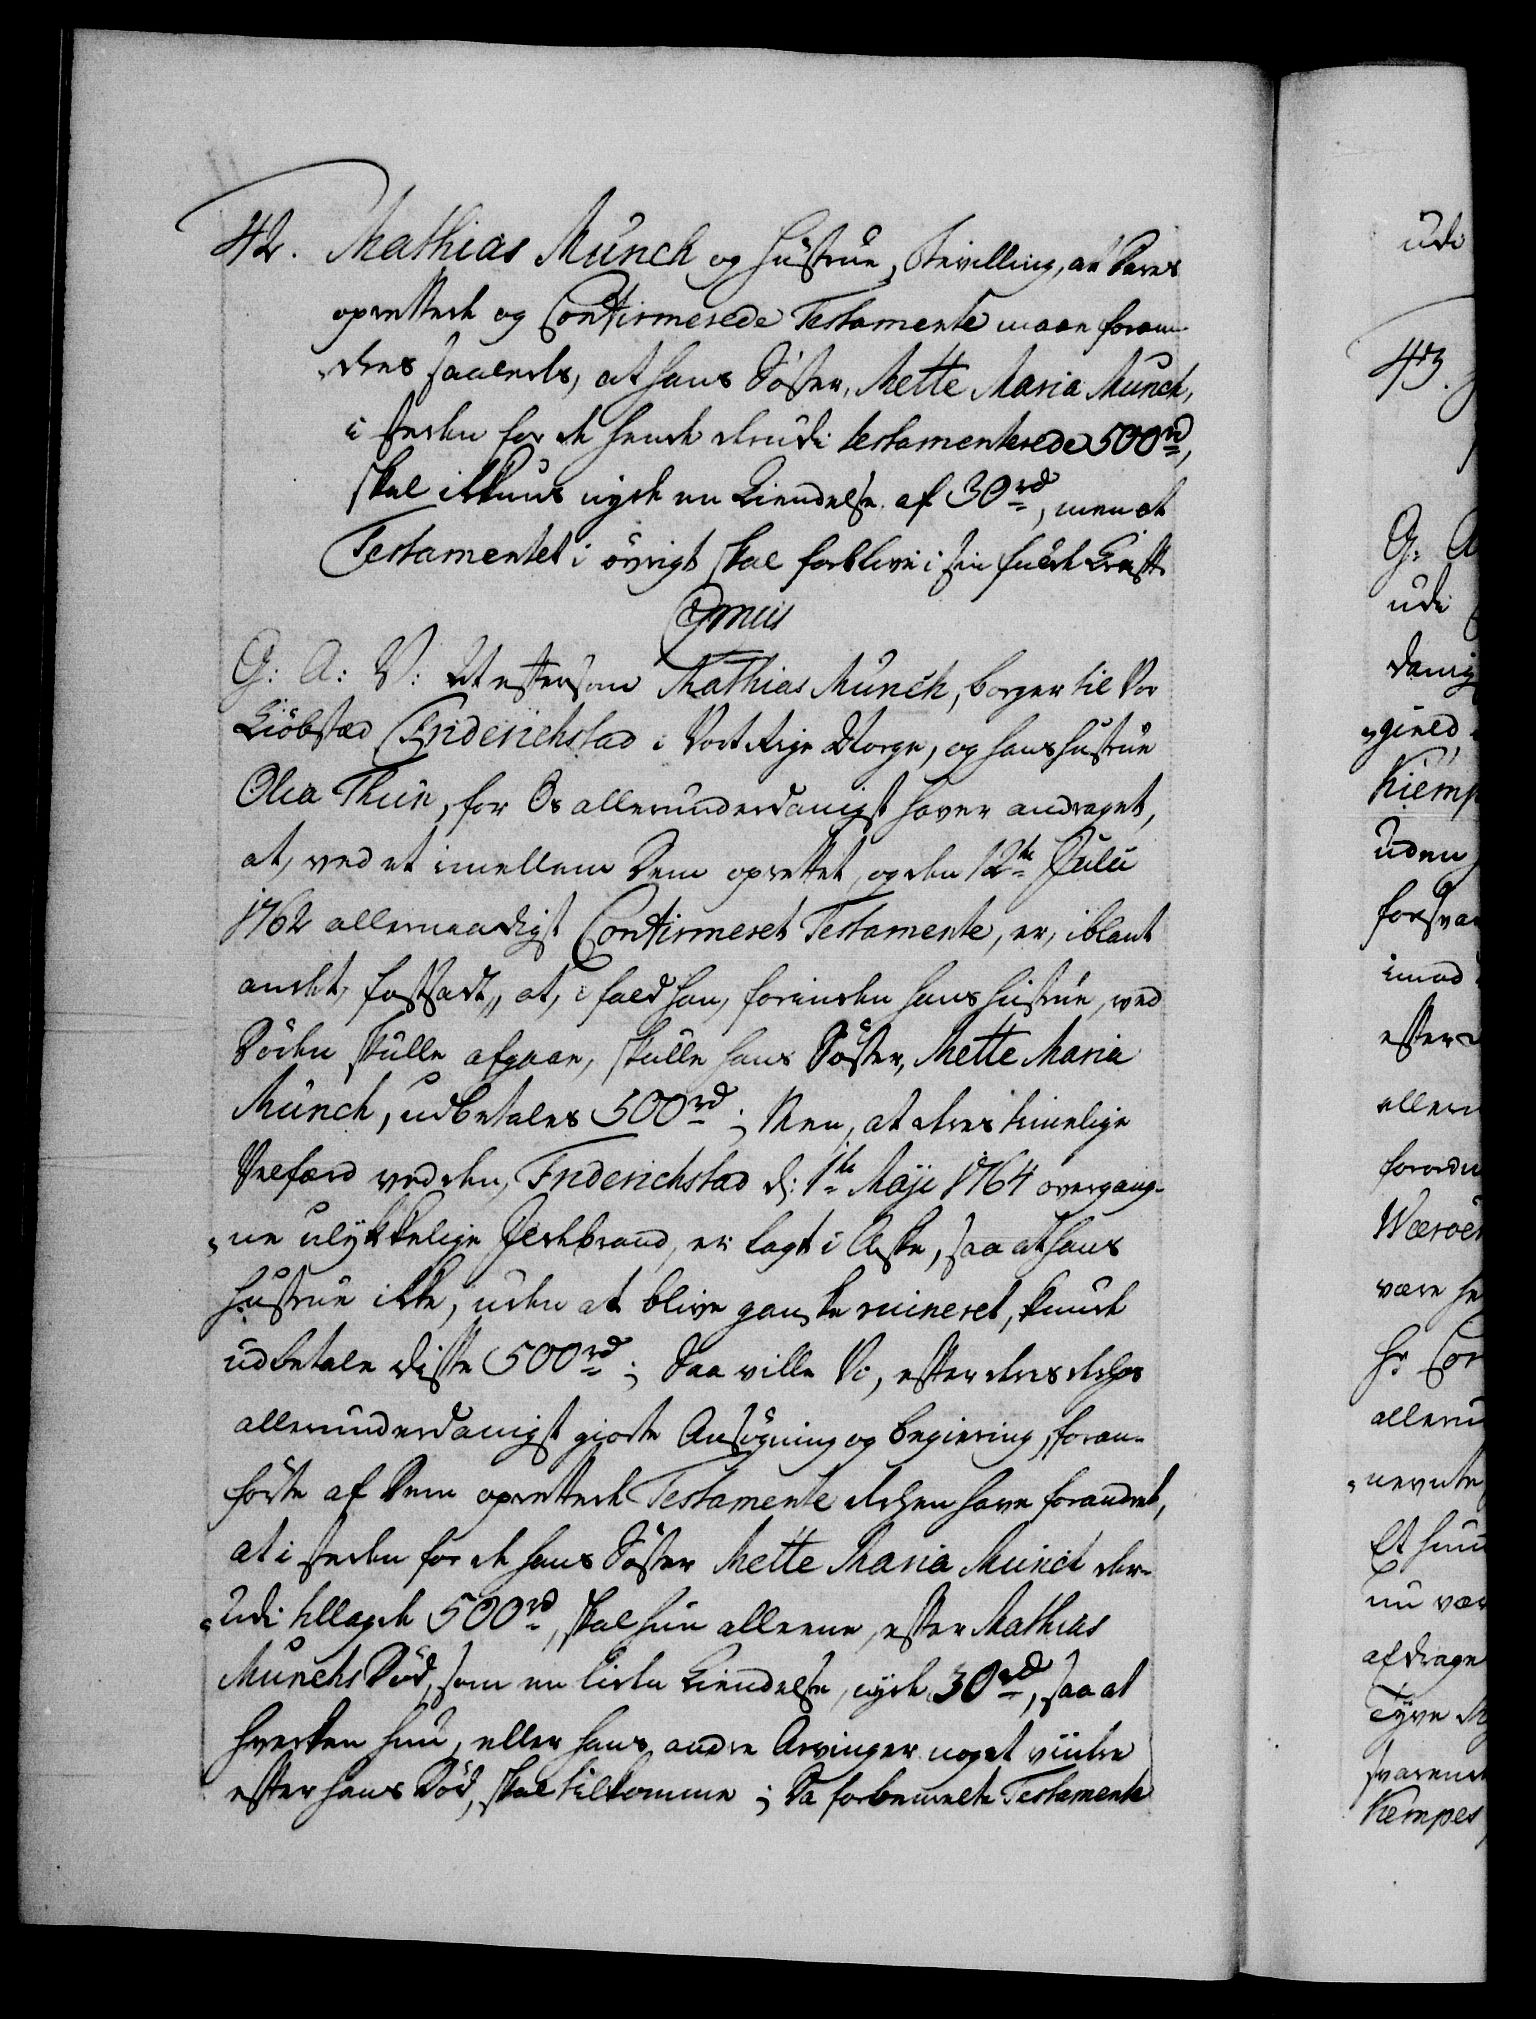 42. Mathias Münch og Hustrue, Bevilling, at Deres
oprettede og Confirmerede Testamente maae foran-
dres saaledes, at hans Söster, Mette Maria Münch,
i steden for de hende derudi testamenterede 500 rd,
skal ikkuns nyde en Kiendelse af 30 rd, men at
Testamentet i övrigt skal forblive i sin fulde Kraft.
G: A: V: At eftersom Mathias Münch, borger til Vor
Kiöbstæd Friderichstad i Vort Rige Norge, og hans hustrue
Olea Thün, for Os allerunderdanigst haver andraget,
at, ved et imellem Dem oprettet, og den 12te Julii
1762 allernaadigst Confirmeret Testamente, er, iblant
andet, fastsadt, at, i fald han, forinden hans hustrue, ved
Döden skulle afgaae, skulle hans Söster, Mette Maria
Münch, udbetales 500 rd; Men, at deres timelige
Velfærd ved den, Friderichstad d: 1te Maji 1764 overgang-
ne ulykkelige Ildebrand, er lagt i Aske, saa at hans
Hustrue ikke, uden at blive ganske ruineret, kunde
udbetale disse 500 rd; Saa ville Vi, efter deres derhos
allerunderdanigst giorte Ansögning og begiering, foran-
förte af Dem oprettede Testamente derhen have forandret,
at i steden for de hans Söster Mette Maria Münch der-
udi tillagde 500 rd, skal hun alleene, efter Mathias
Münchs Död, som en liden Kiendelse, nyde 30 rd, saa at
hverken hun, eller hans andre Arvinger noget viidre
efter hans Död, skal tilkomme; Da forbemelte Testamente
udi
43.
G: A
udi
danig
gield,
Kiemp
uden
forsvar
imod
efter
aller
forordn
Wæröe
være he
Hr Con
alleru
nevnte
Et hun
nu vær
afdrage
Tyve
svarend
Kempes